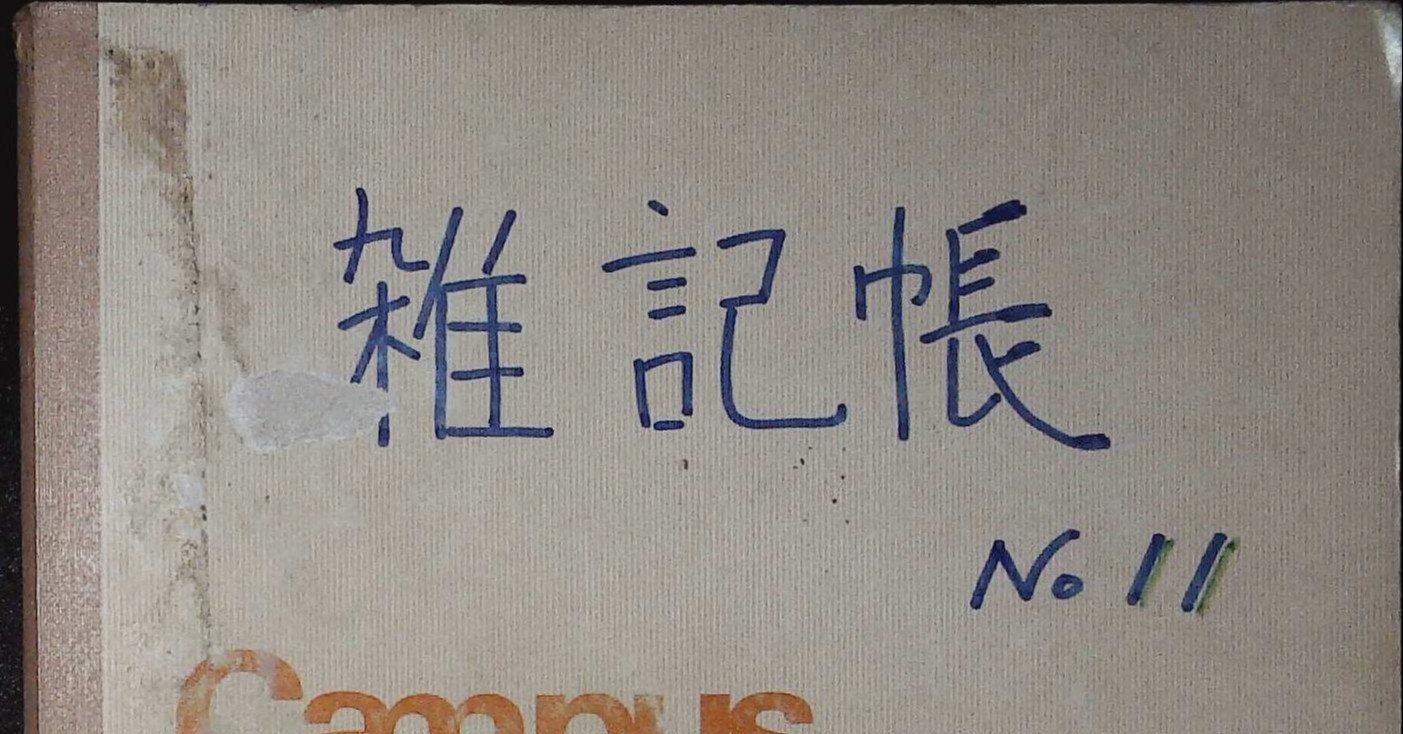 雑記帳
No 11
Campus